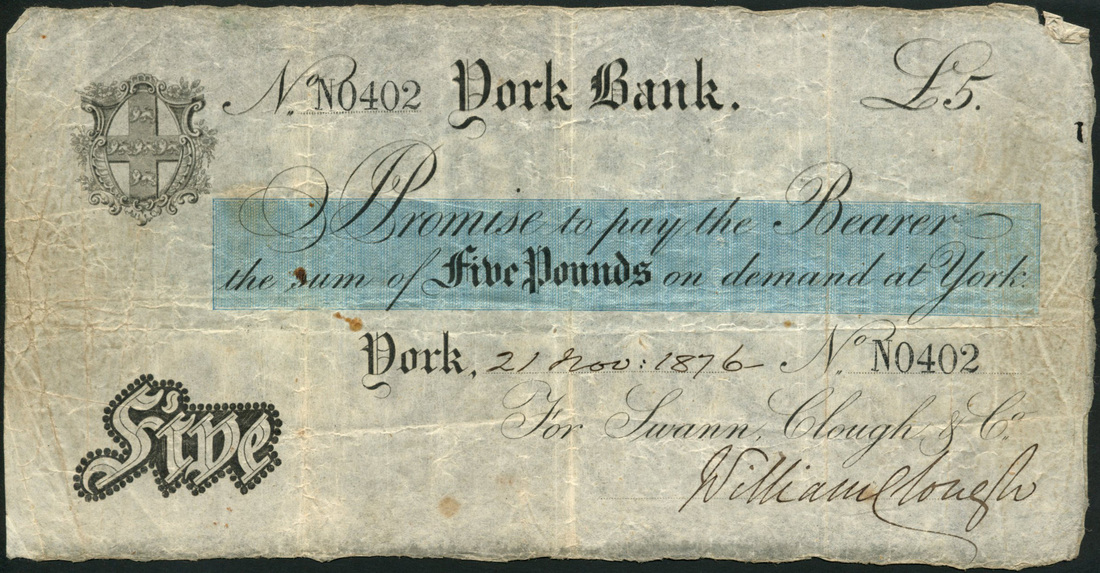 No. N0402 York Bank. £5.
I Promise to pay the Bearer
the sum of Five Pounds on demand at York.
York, 21 Nov: 1876 No. N0402
For Swann, Clough & Co.
Five
William Clough